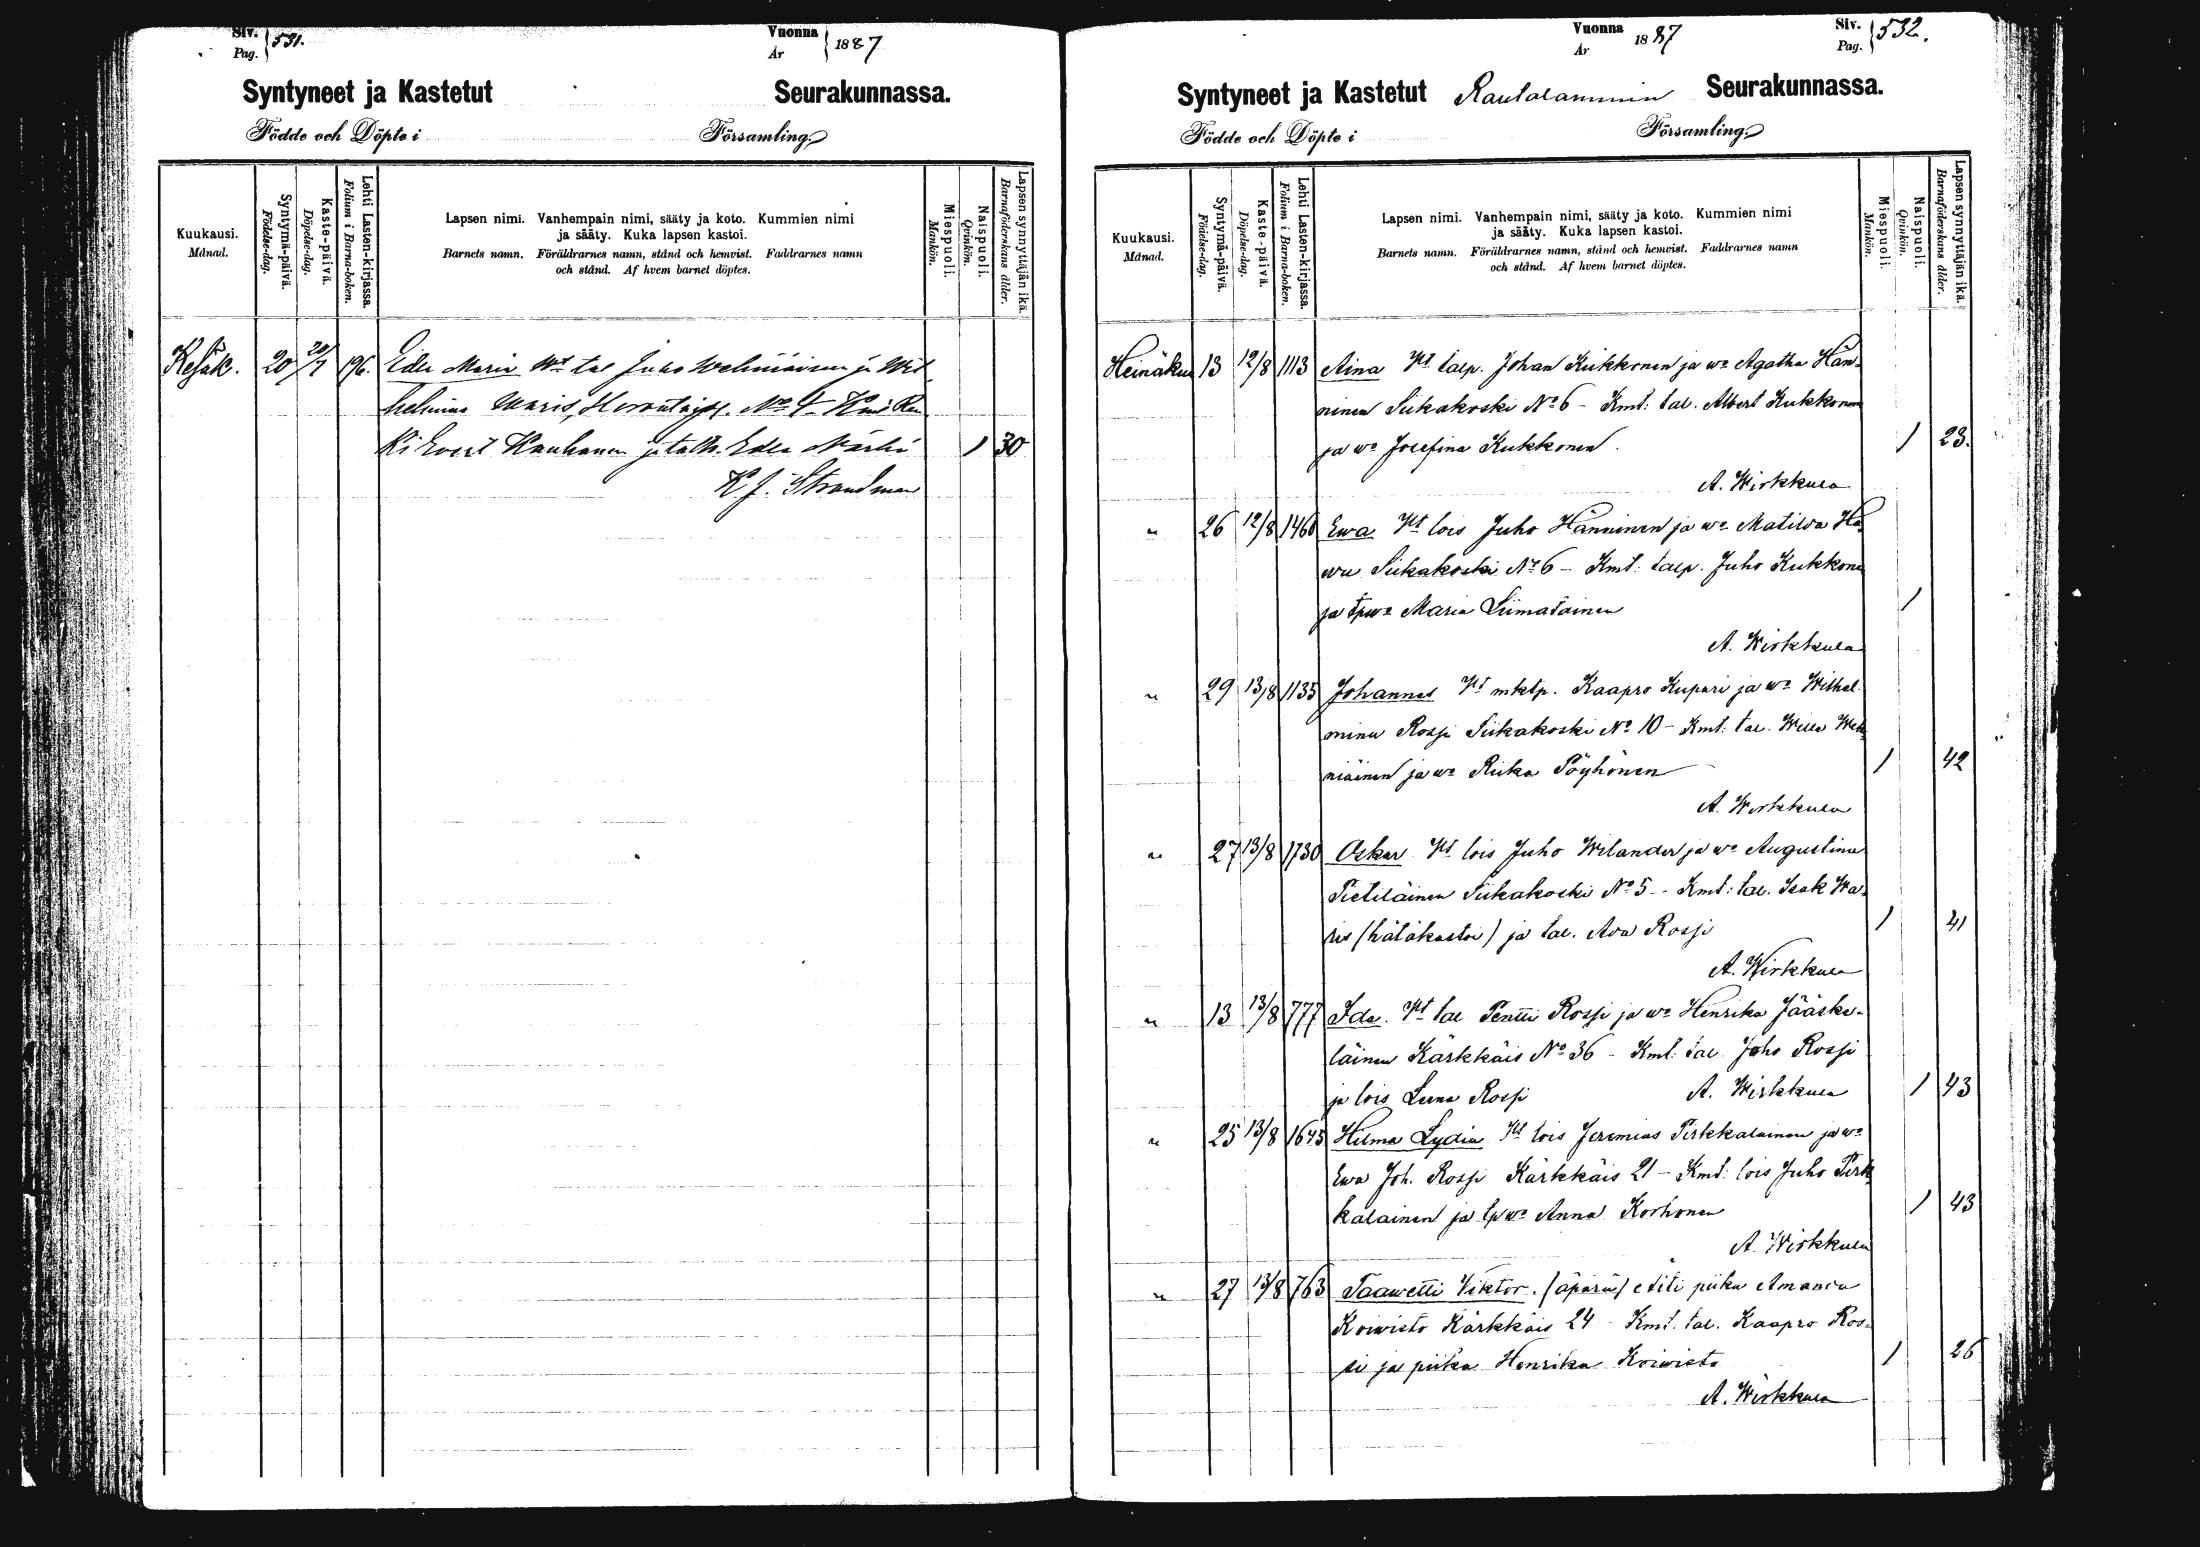 Siv.
Pag. 531.
Vuonna
År 1887
Syntyneet ja Kastetut Seurakunnassa.
Födde och Döpte i Församling.
Kuukausi.
Månad.
Syntymä-päivä.
Födelse-dag.
Kaste-päivä.
Döpelse-dag.
Lehti Lasten-kirjassa.
Folium i Barna-boken.
Lapsen nimi. Vanhempain nimi, sääty ja koto. Kummien nimi
ja sääty. Kuka lapsen kastoi.
Barnets namn. Föräldrarnes namn, stånd och hemvist. Faddrarnes namn
och stånd. Af hvem barnet döptes.
Miespuoli.
Mankön.
Naispuoli.
Qvinkön.
Lapsen synnyttäjän ikä.
Barnaföderskans ålder.
Kesäk. 20 20/7 196. Eda Maria Vt tal Juho Wehniäinen ja Wil
helmina Maria, N:o 4
Evert Kauhanen ja Eda 1 30
K. J. Strandman
Siv.
Pag. 532.
Vuonna
År 1887
Syntyneet ja Kastetut Rautalammin Seurakunnassa.
Födde och Döpte i Församling.
Kuukausi.
Månad.
Syntymä-päivä.
Födelse-dag.
Kaste-päivä.
Döpelse-dag.
Lehti Lasten-kirjassa.
Folium i Barna-boken.
Lapsen nimi. Vanhempain nimi, sääty ja koto. Kummien nimi
ja sääty. Kuka lapsen kastoi.
Barnets namn. Föräldrarnes namn, stånd och hemvist. Faddrarnes namn
och stånd. Af hvem barnet döptes.
Miespuoli.
Mankön.
Naispuoli.
Qvinkön.
Lapsen synnyttäjän ikä.
Barnaföderskans ålder.
Heinäkuu 13 12/8 1113 Aina Vt talp. Johan Kukkonen ja wo Agatha Hän-
ninen Siikakoski No 6 - Kmt: tal. Albert Kukkonen
ja wo Josefina Kukkonen. 1 23.
A. Wirkkula
" 26 12/8 1460 Ewa Vt lois Juho Hänninen ja wo Matilda Ha-
wu Siikakoski No 6 - Kmt: talp. Juho Kukkonen
ja tpwo Maria Liimatainen 1
A. Wirkkula
" 29 13/8 1135 Johannes Vt mktp. Kaapro Kupari ja wo Wilhel-
mina Rossi Siikakoski No 10 - Kmt: tal. Wille Weh-
niäinen ja wo Riika Pöyhönen 1 42
A. Wirkkula
" 27 13/8 1730 Oskar Vt lois Juho Welander ja wo Augustina
Pietiläinen Siikakoski No 5 - Kmt: tal. Isak Wa-
ris (hätäkastoi) ja tal. Ava Rossi 1 41
A. Wirkkula
" 13 13/8 777 Ida. Vt tal Pentti Rossi ja wo Henrika Jääske-
läinen Kärkkäis No 36 - Kmt: tal. Juho Rossi
ja lois Leena Rossi A. Wirkkula 1 43
" 25 13/8 1645 Hilma Lydia Vt lois Jeremias Pirkkalainen ja wo
Ewa Joh. Rossi Kärkkäis 21 - Kmt: lois Juho Pirk-
kalainen ja tpwo Anna Korhonen 1 43
A. Wirkkula
" 27 13/8 763 Taawetti Viktor. (äpärä) äiti piika Amanda
Koiwisto Kärkkäis 24 - Kmt: tal. Kaapro Ros-
si ja piika Henrika Koiwisto 1 26
A. Wirkkula